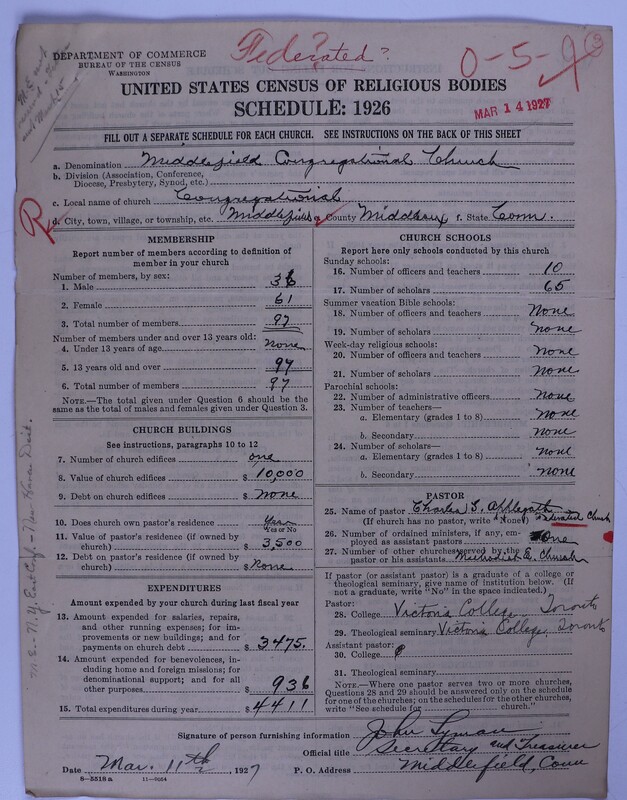 DEPARTMENT OF COMMERCE
BUREAU OF THE CENSUS
WASHINGTON
Federated?
0-5-
MAR 14 1927
UNITED STATES CENSUS OF RELIGIOUS BODIES
SCHEDULE: 1926
FILL OUT A SEPARATE SCHEDULE FOR EACH CHURCH. SEE INSTRUCTIONS ON THE BACK OF THIS SHEET
a. Denomination Middlefield Congregational Church
b. Division (Association, Conference,
Diocese, Presbytery, Synod, etc.)
c. Local name of church Congregational
R
d. City, town, village, or township, etc. Middlefield e. County Middlesex f. State Conn.
MEMBERSHIP
Report number of members according to definition of
member in your church
Number of members, by sex:
1. Male 36
2. Female 61
3. Total number of members 97
Number of members under and over 13 years old:
4. Under 13 years of age none
5. 13 years old and over 97
6. Total number of members 97
NOTE.—The total given under Question 6 should be the
same as the total of males and females given under Question 3.
CHURCH BUILDINGS
See instructions, paragraphs 10 to 12
7. Number of church edifices one
8. Value of church edifices $ 10,000
9. Debt on church edifices $ None
10. Does church own pastor's residence Yes
Yes or No
11. Value of pastor's residence (if owned by
church) $ 3,500
12. Debt on pastor's residence (if owned by
church) $ None
EXPENDITURES
Amount expended by your church during last fiscal year
13. Amount expended for salaries, repairs,
and other running expenses; for im-
provements or new buildings; and for
payments on church debt $ 3475.
14. Amount expended for benevolences, in-
cluding home and foreign missions; for
denominational support; and for all
other purposes $ 936
15. Total expenditures during year $ 4411
CHURCH SCHOOLS
Report here only schools conducted by this church
Sunday schools:
16. Number of officers and teachers 10
17. Number of scholars 65
Summer vacation Bible schools:
18. Number of officers and teachers None
19. Number of scholars none
Week-day religious schools:
20. Number of officers and teachers None
21. Number of scholars None
Parochial schools:
22. Number of administrative officers None
23. Number of teachers—
a. Elementary (grades 1 to 8) None
b. Secondary None
24. Number of scholars—
a. Elementary (grades 1 to 8) none
b. Secondary none
PASTOR
25. Name of pastor Charles S. Applegath
(If church has no pastor, write "None") Federated Church
26. Number of ordained ministers, if any, em-
ployed as assistant pastors One
27. Number of other churches served by the
pastor or his assistants Methodist E. Church
If pastor (or assistant pastor) is a graduate of a college or
theological seminary, give name of institution below. (If
not a graduate, write "No" in the space indicated.)
Pastor:
28. College Victoria College, Toronto
29. Theological seminary Victoria College, Toronto
Assistant pastor:
30. College
31. Theological seminary
NOTE.—Where one pastor serves two or more churches,
Questions 28 and 29 should be answered only on the schedule
for one of the churches; on the schedules for the other churches,
write "See schedule for church."
Signature of person furnishing information John Lyman
Official title Secretary and Treasurer
Date Mar. 11th, 1927 P. O. Address Middlefield, Conn
8—5518 a 11—9054
M.E.—N.Y. East Conf.—New Haven Dist.